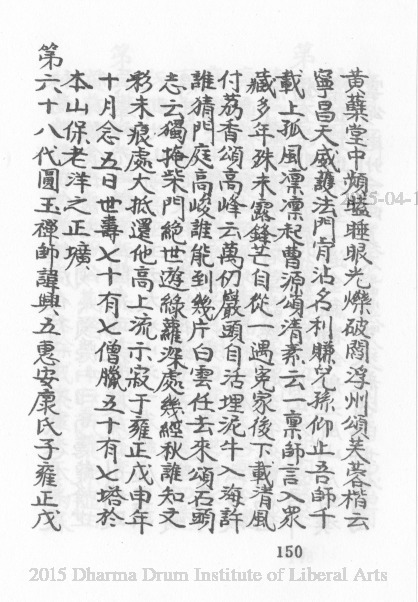 黃蘗堂中頻瞌睡眼光爍破閻浮州頌芙蓉楷云
寧昌天威護法門肯沾名利賺兒孫仰止吾師千
載上孤風凛凛起曹源頌清素云一稟師言入眾
藏多年殊未露鋒芒自從一遇冤家後下載清風
付荔香頌高峰云萬仞巖頭自活埋泥牛入海許
誰猜門庭高峻誰能到幾片白雲任去來頌石頭
志云獨掩柴門絕世遊綠蘿深處幾經秋誰知文
彩未痕處大抵還他高上流示寂于雍正戊申年
十月念五日世壽七十有七僧臘五十有七塔於
本山保老洋之正壙
第六十八代圓玉禪師諱興五惠安康氏子雍正戊
150
2015 Dharma Drum Institute of Liberal Arts